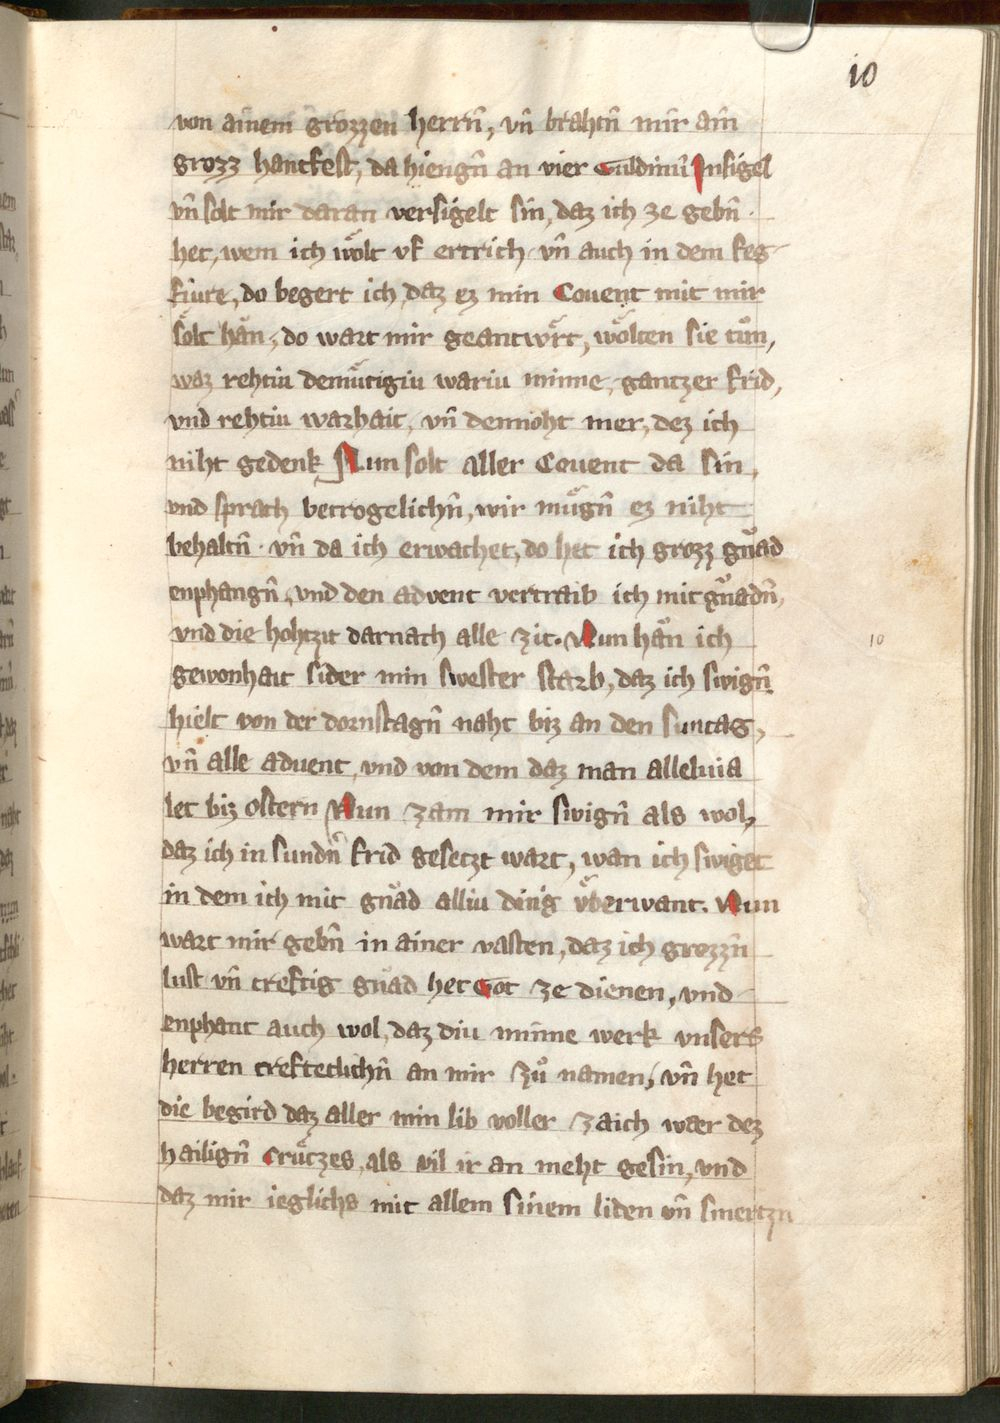 10
von ainem grozzen herrn̄, vn̄ brahtn̄ mir ain
grozz hantfest, da hiengn̄ an vier Guldiniu Insigel
vn̄ solt mir daran versigelt sin, daz ich ze gebn̄
het, wem ich wolt vf ertrich vn̄ auch in dem feg
fiure, do begert ich daz ez min Couent mit mir
solt han, do wart mir geantwrt, wolten sie tuͦn,
waz rehtiu demuͤtigiu wariu minne, gantzer frid,
vnd rehtiu warhait, vn̄ dennoht mer, dez ich
niht gedenk Nun solt aller Couent da sin,
vnd sprach betrogelichn̄, wir muͤgn̄ ez niht
behaltn̄ · vn̄ da ich erwachet, do het ich grozz gnad
enphangn̄, vnd den advent vertraib ich mit gnadn̄,
vnd die hohtzit darnach alle zit. Nun han ich
10
gewonhait sider min swester starb, daz ich swign̄
hielt von der dornstagn̄ naht biz an den suntag,
vn̄ alle aduent, vnd von dem daz man alleluia
let biz ostern Nun zam mir swign̄ als wol,
daz ich in sundn̄ frid gesetzt wart, wan ich swiget
in dem ich mit gnad alliu ding uͤberwant. Nun
wart mir gebn̄ in ainer vasten, daz ich grozzn̄
lust vn̄ creftig gnad het Got ze dienen, vnd
enphant auch wol, daz diu minne werk vnsers
herren crefteclichn̄ an mir zuͦ namen, vn̄ het
die begird daz aller min lib voller zaich wær dez
hailign̄ cruͤtzes, als vil ir an meht gesin, vnd
daz mir ieglichs mit allem sinem liden vn̄ smertzn